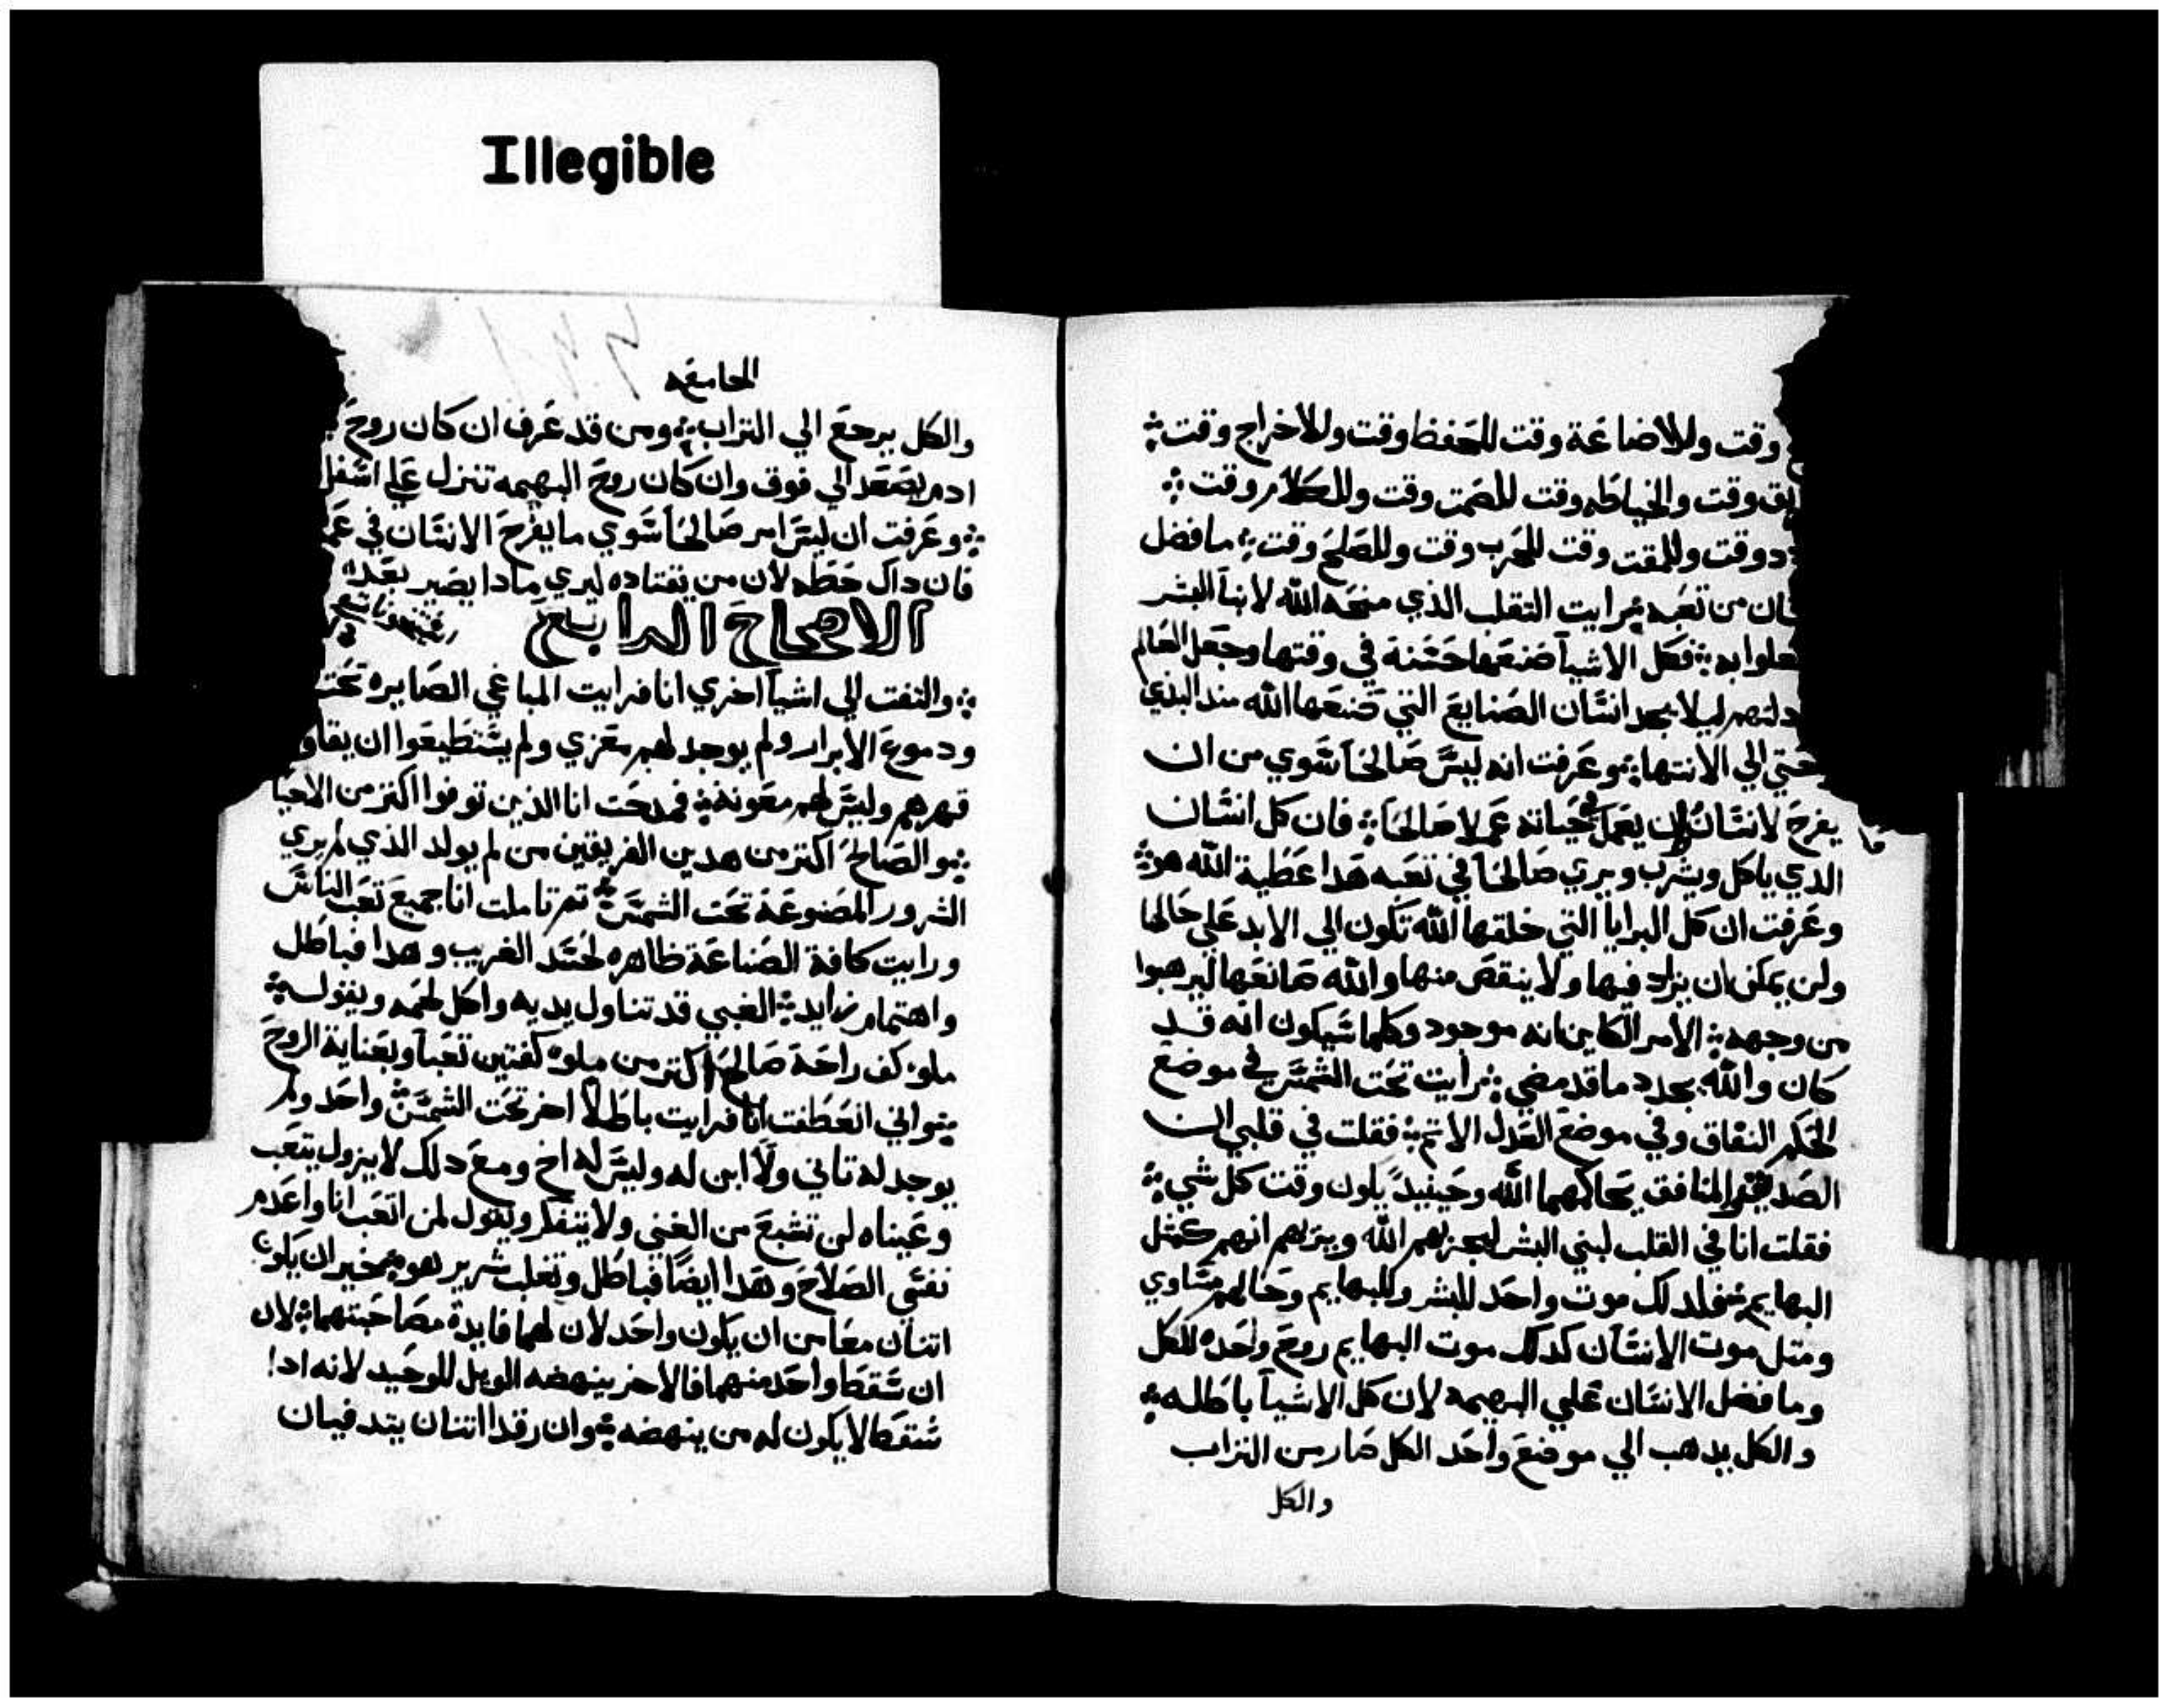 Illegible
وقت وللاضاعة وقت للحفظ وقت وللاخراج وقت
وقت والخياطه وقت للصمت وقت وللكلام وقت
وقت وللمقت وقت للحرب وقت وللصلح وقت ما فضل
من تعبه رايت التقلب الذي منحه الله لابنا البشر
به فكل الاشيا صنعها حسنة في وقتها وجعل العالم
ليلا يجد انسان الصنايع التي صنعها الله مند البدي
حتي الي الانتها وعرفت انه ليس صالحا سوي من ان
يفرح لانسان في حياته عملا صالحا فان كل انسان
الدي ياكل ويشرب ويري صالحا في تعبه هدا عطية الله هو
وعرفت ان كل البرايا التي خلقها الله تكون الي الابد علي حالها
ولن يمكن ان يزاد فيها ولا ينقص منها والله صانعها ليرهبوا
من وجهه الامر الكاين انه موجود وكلما سيكون انه قد
كان والله يجدد ما قد مضي رايت تحت الشمس في موضع
الحكم النفاق وفي موضع العدل الاتم فقلت في قلبي ان
المنافق يحاكمهما الله وحينيد يكون وقت كل شي
فقلت انا في القلب لبني البشر ليجزيهم الله ويريهم انهم كمثل
البهايم فلدلك موت واحد للبشر وللبهايم وحالهم متساوي
ومتل موت الانسان كدلك موت البهايم روح واحده للكل
وما فضل الانسان علي البهيمه لان كل الاشيا باطله
والكل يدهب الي موضع واحد الكل صار من التراب
والكل
الجامعه
والكل يرجع الي التراب ومن قد عرف ان كان روح
ادم يصعد الي فوق وان كان روح البهيمه تنزل علي اسفل
وعرفت ان ليس امر صالحا سوي ما يفرح الانسان في
فان داك حظه لان من يقتاده ليري مادا يصير بعده
الاصحاح الرابع
والتفت الي اشيا اخري انا فرايت المباغي الصايره تحت
ودموع الابرار ولم يوجد لهم معزي ولم يستطيعوا ان
قهرهم وليس لهم معونة فمدحت انا الذين توفوا اكتر من الاحيا
والصالح اكتر من هدين الفريقين من لم يولد الذي لم يري
الشرور المصنوعة تحت الشمس تم تاملت انا جميع تعب الناس
ورايت كافة الصناعة ظاهره لحسد الغريب وهدا فباطل
واهتمام زايد الغبي قد تناول يديه واكل لحمه ويقول
ملو كف راحة صالحا اكتر من ملو كفتين تعبا وبعناية الروح
واني انعطفت انا فرايت باطلا اخر تحت الشمس واحد ولم
يوجد له تاني ولا ابن له وليس له اخ ومع دلك لا يزول يتعب
وعيناه لن تشبع من الغني ولا يتفكر ويقول لمن اتعب انا واعدم
نفسي الصلاح وهدا ايضا فباطل وتغلب شرير هو فخير ان يكون
اتنان معا من ان يكون واحد لان لهما فايدة مصاحبتهما لان
ان سقط واحد منهما فالاخر ينهضه الويل للوحيد لانه ادا
سقط لا يكون له من ينهضه وان رقدا اتنان يتدفيان